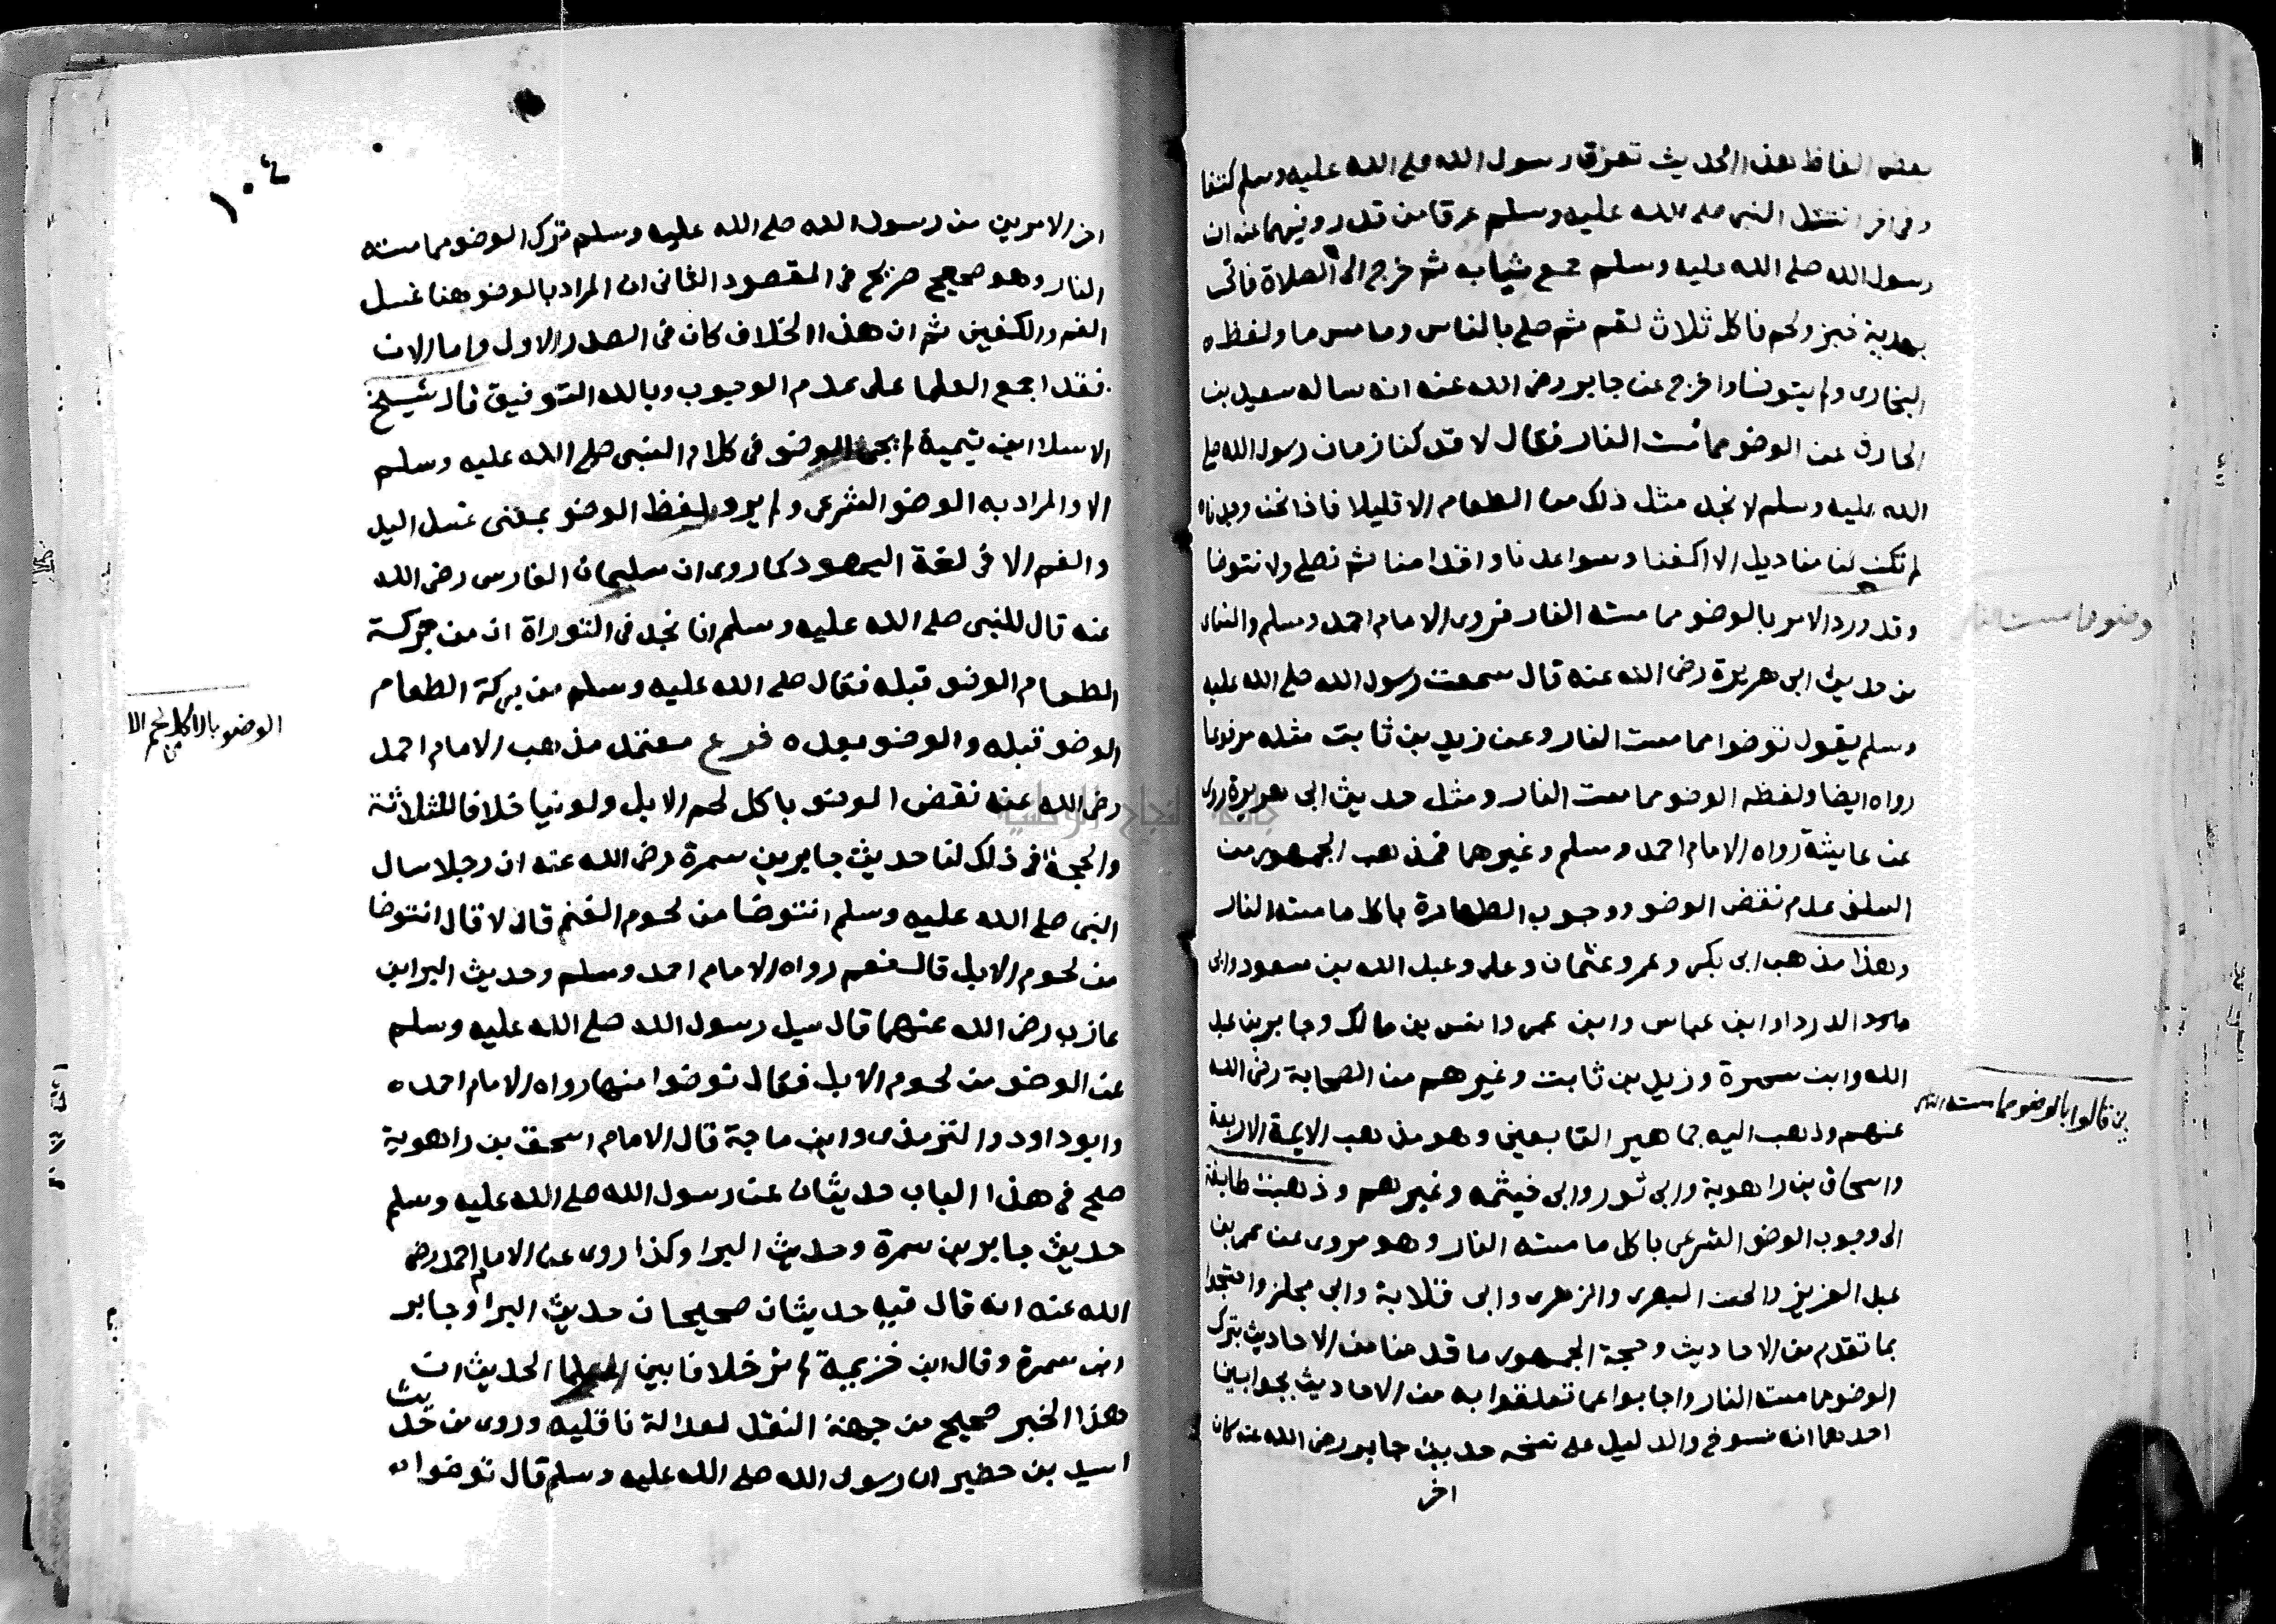 بعض الفاظ هذا الحديث تعرق رسول الله صلى الله عليه وسلم كتفا
وفى اخر انتشل النبى صلى الله عليه وسلم عرقا من قدر وفيهما عنه ان
رسول الله صلى الله عليه وسلم جمع ثيابه ثم خرج الى الصلاة فاتى
بهدية خبز ولحم فاكل ثلاث لقم ثم صلى بالناس وما مس ما ولفظه
البخارى ولم يتوضا واخرج عن جابر رضى الله عنه انه ساله سعيد بن
الحارث عن الوضو مما مست النار فقال لا قد كنا زمان رسول الله صلى
الله عليه وسلم لا نجد مثل ذلك من الطعام الا قليلا فاذا نحن وجدناه
لم تكن لنا مناديل الا اكفنا وسواعدنا واقدامنا ثم نصلى ولا نتوضا
وقد ورد الامر بالوضو مما مسته النار فروى الامام احمد ومسلم والنساى
من حديث ابى هريرة رضى الله عنه قال سمعت رسول الله صلى الله عليه
وسلم يقول توضوا مما مست النار وعن زيد بن ثابت مثله مرفوعا
رواه ايضا ولفظه الوضو مما مست النار ومثل حديث ابى هريرة روى
عن عايشة رواه الامام احمد ومسلم وغيرهما فمذهب الجمهور من
السلف عدم نقض الوضو ووجوب الطهارة باكل ما مسته النار
وهذا مذهب ابى بكر وعمر وعثمان وعلى وعبد الله بن مسعود وابى
الدرداء وابن عباس وابن عمر وانس بن مالك وجابر بن عبد
الله وابن سمرة وزيد بن ثابت وغيرهم من الصحابة رضى الله
عنهم وذهب اليه جماهير التابعين وهو مذهب الايمة الاربعة
واسحاق بن راهوية وابى ثور وابى خيثمه وغيرهم وذهبت طايفة
الى وجوب الوضو الشرعى باكل ما مسته النار وهو مروى عن عمر بن
عبد العزيز والحسن البصرى والزهرى وابى قلابة وابى مجلز واحتجوا
بما تقدم من الاحاديث وحجة الجمهور ما قدمنا من الاحاديث بترك
الوضو مما مست النار واجابوا عما تعلقوا به من الاحاديث بجوابين
احدهما انه منسوخ والدليل على نسخه حديث جابر رضى الله عنه كان
اخر
وضو ما مست النار
من قالوا بالوضو مما مسته النار
١٠٤
اخر الامرين من رسول الله صلى الله عليه وسلم ترك الوضو مما مسته
النار وهو صحيح صريح فى المقصود الثانى ان المراد بالوضو هنا غسل
الفم والكفين ثم ان هذا الخلاف كان فى الصدر الاول واما الان
فقد اجمع العلما على عدم الوجوب وبالله التوفيق قال شيخ
الاسلا ابن تيمية لم يجى الوضو فى كلام النبى صلى الله عليه وسلم
الا والمراد به الوضو الشرعى ولم يرو لفظ الوضو بمعنى غسل اليد
والفم الا فى لغة اليهود كما روى ان سليمان الفارسى رضى الله
عنه قال للنبى صلى الله عليه وسلم انا نجد فى التوراة ان من بركة
الطعام الوضو قبله فقال صلى الله عليه وسلم من بركة الطعام
الوضو قبله والوضو بعده فرع معتمد مذهب الامام احمد
رضى الله عنه نقض الوضو باكل لحم الابل ولو نيا خلافا للثلاثة
والحجة فى ذلك لنا حديث جابر بن سمرة رضى الله عنه ان رجلا سال
النبى صلى الله عليه وسلم انتوضا من لحوم الغنم قال لا قال انتوضا
من لحوم الابل قال نعم رواه الامام احمد ومسلم وحديث البرا بن
عازب رضى الله عنهما قال سيل رسول الله صلى الله عليه وسلم
عن الوضو من لحوم الابل فقال توضوا منها رواه الامام احمد
وابو داود والترمذى وابن ماجة قال الامام اسحق بن راهوية
صح فى هذا الباب حديثان عن رسول الله صلى الله عليه وسلم
حديث جابر بن سمرة وحديث البرا وكذا روى عن الامام احمد رضى
الله عنه انه قال فيه حديثان صحيحان حديث البرا وجابر
ابن سمرة وقال ابن خزيمة لم نر خلافا بين علما الحديث ان
هذا الخبر صحيح من جهة النقل لعدالة ناقليه وروى من حديث
اسيد بن حضير ان رسول الله صلى الله عليه وسلم قال توضوا
الوضو بالاكل من لحم الا
جامعة النجاح الوطنية